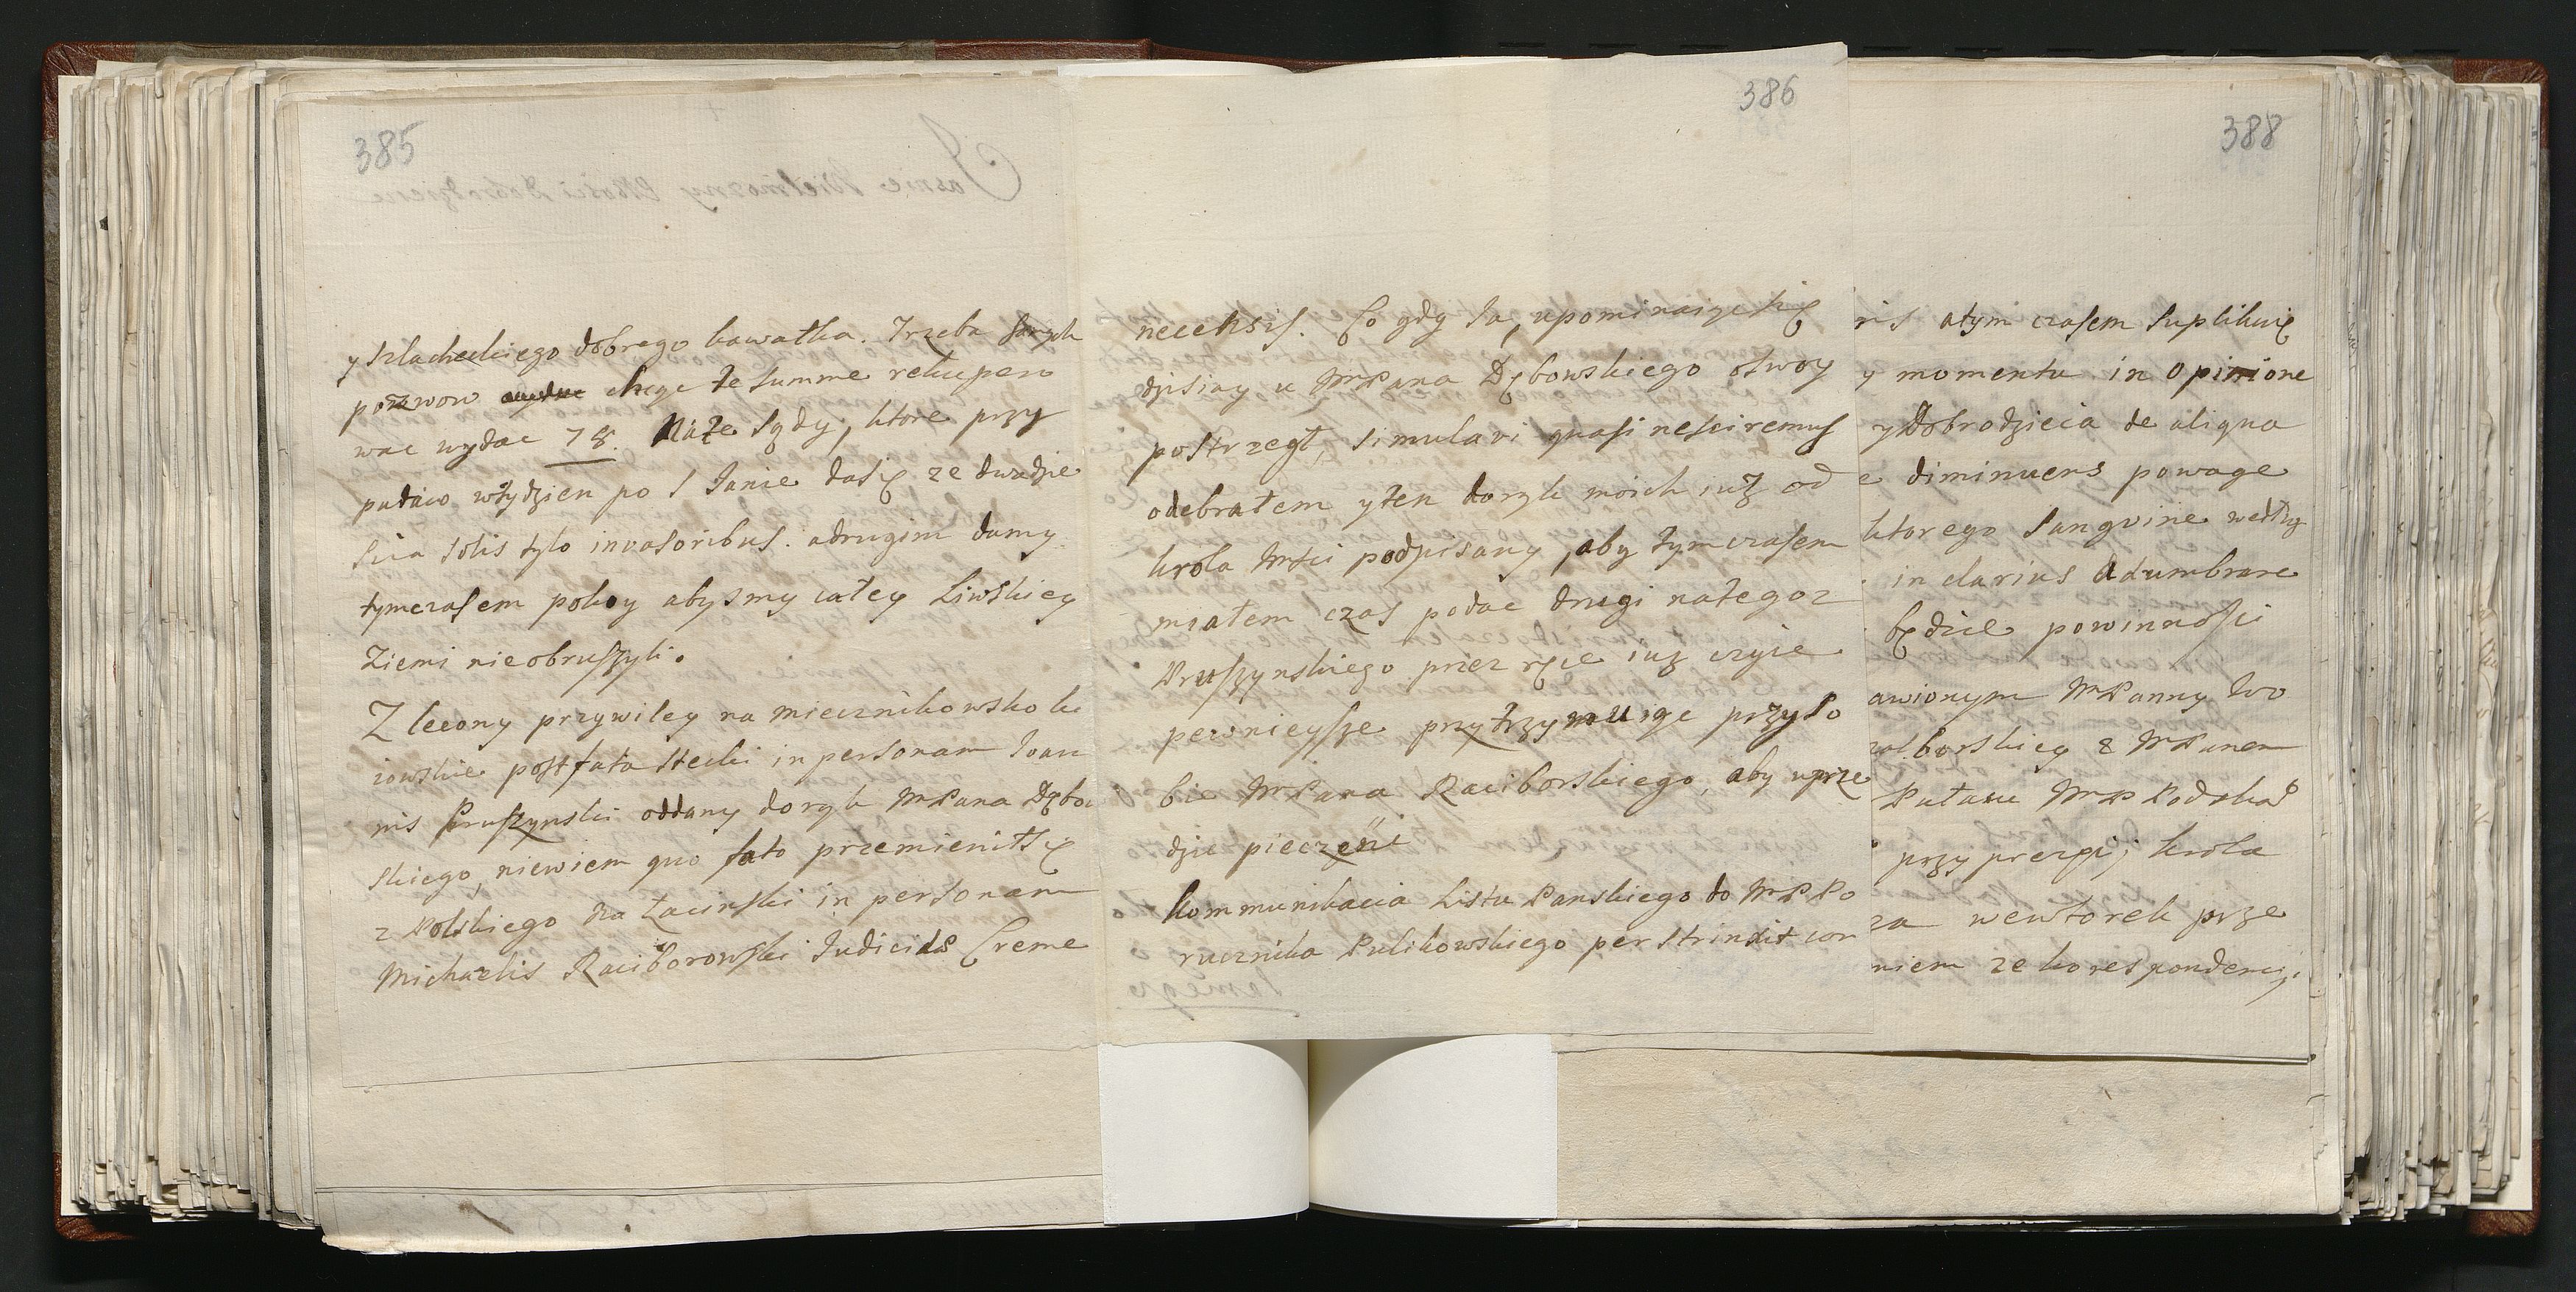 385
y szlacheckiego dobrego kawałka. Trzeba
pozwow chcąc te summe rekupero
wac wydac 78. Naże Sądy, ktore przy
padaio wtydzien po S Janie dasię ze dwadzie
scia solis tylo invasoribus. adrugim damy
tymczasem pokoy abysmy całey Liwskiey
Ziemi nieobruszyli.
Zlecony przywiley na miecznikowsko ki
iowskie post fata Stecki in personam Joan
nis Pruszynski oddany dorąk MPana Dębo
skiego, niewiem quo fato przemieniłsię
z Polskiego na Łacinski in personam
Michaelis Raciborowski Judicids Creme
386
necensis. Co gdy Ja, upominaiąc się
dzisiay u MPana Dębowskiego otwoy
postrzegł, simulavi quasi nesciremus
odebrałem yten dorąk moich iuż od
krola Mści podpisany, aby tymczasem
miałem czas podac drugi nategoz
Pruszynskiego przez ręce iuż czyie
pewnieysze przytrzymuiąc przyso
bie MPana Raciborskiego, aby uprze
dzic pieczęnie
Kommunikacia Listu Panskiego do MPPo
rucznika Kulikowskiego perstrinxit cor
388
ris atym czasem Suplikuię
y momentu in opinione
y Dobrodzieia de aliqua
e diminuens powage
ktorego Sangvine według
in clarius Adumbrare
będzie powinnosci
awionym MPanny Wo
walborskiey z MPanem
Pułasu MP Podskar
przy prezyi; krola
za wewtorek prze
niem ze korespondencyi